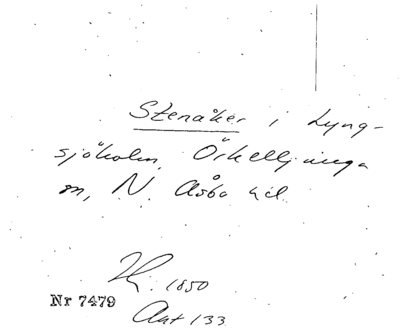 Stenåker i Lyng-
sjöholm, Örkelljunga
sn, N. Åsbo hd.
1850
Nr 7479
Akt 133